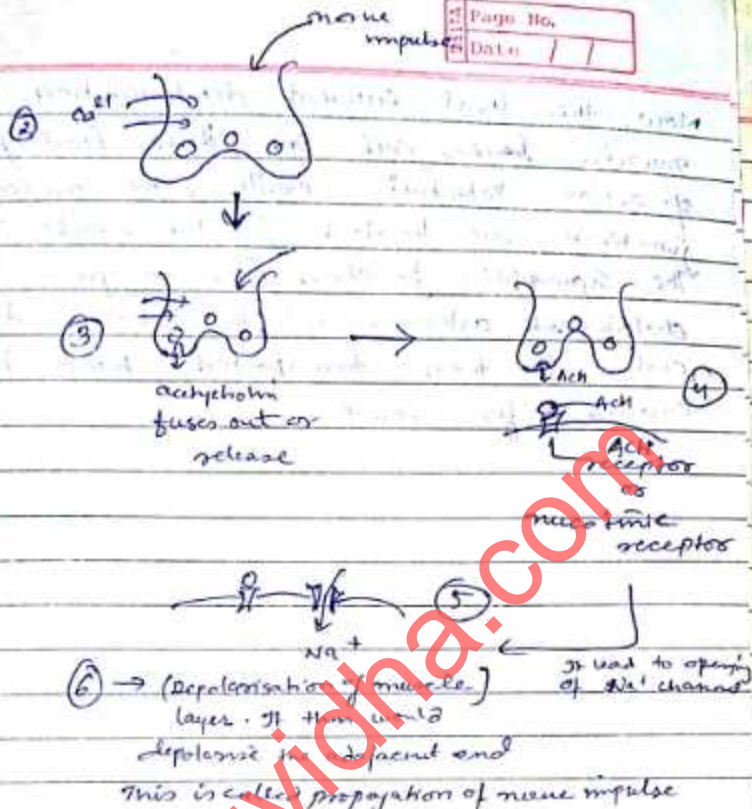 Page No.
Date / /
nerve
impulse
②
③
acetycholin
fuses out or
release
ACH
ACH
④
ACH
receptor
or
nicotinic
receptor
⑤
Na⁺
It lead to opening
of Na⁺ channel
⑥ → (Depolarisation of muscle]
layer. It then would
depolarise the adjacent end
This is called propogation of nerve impulse
vidha.com